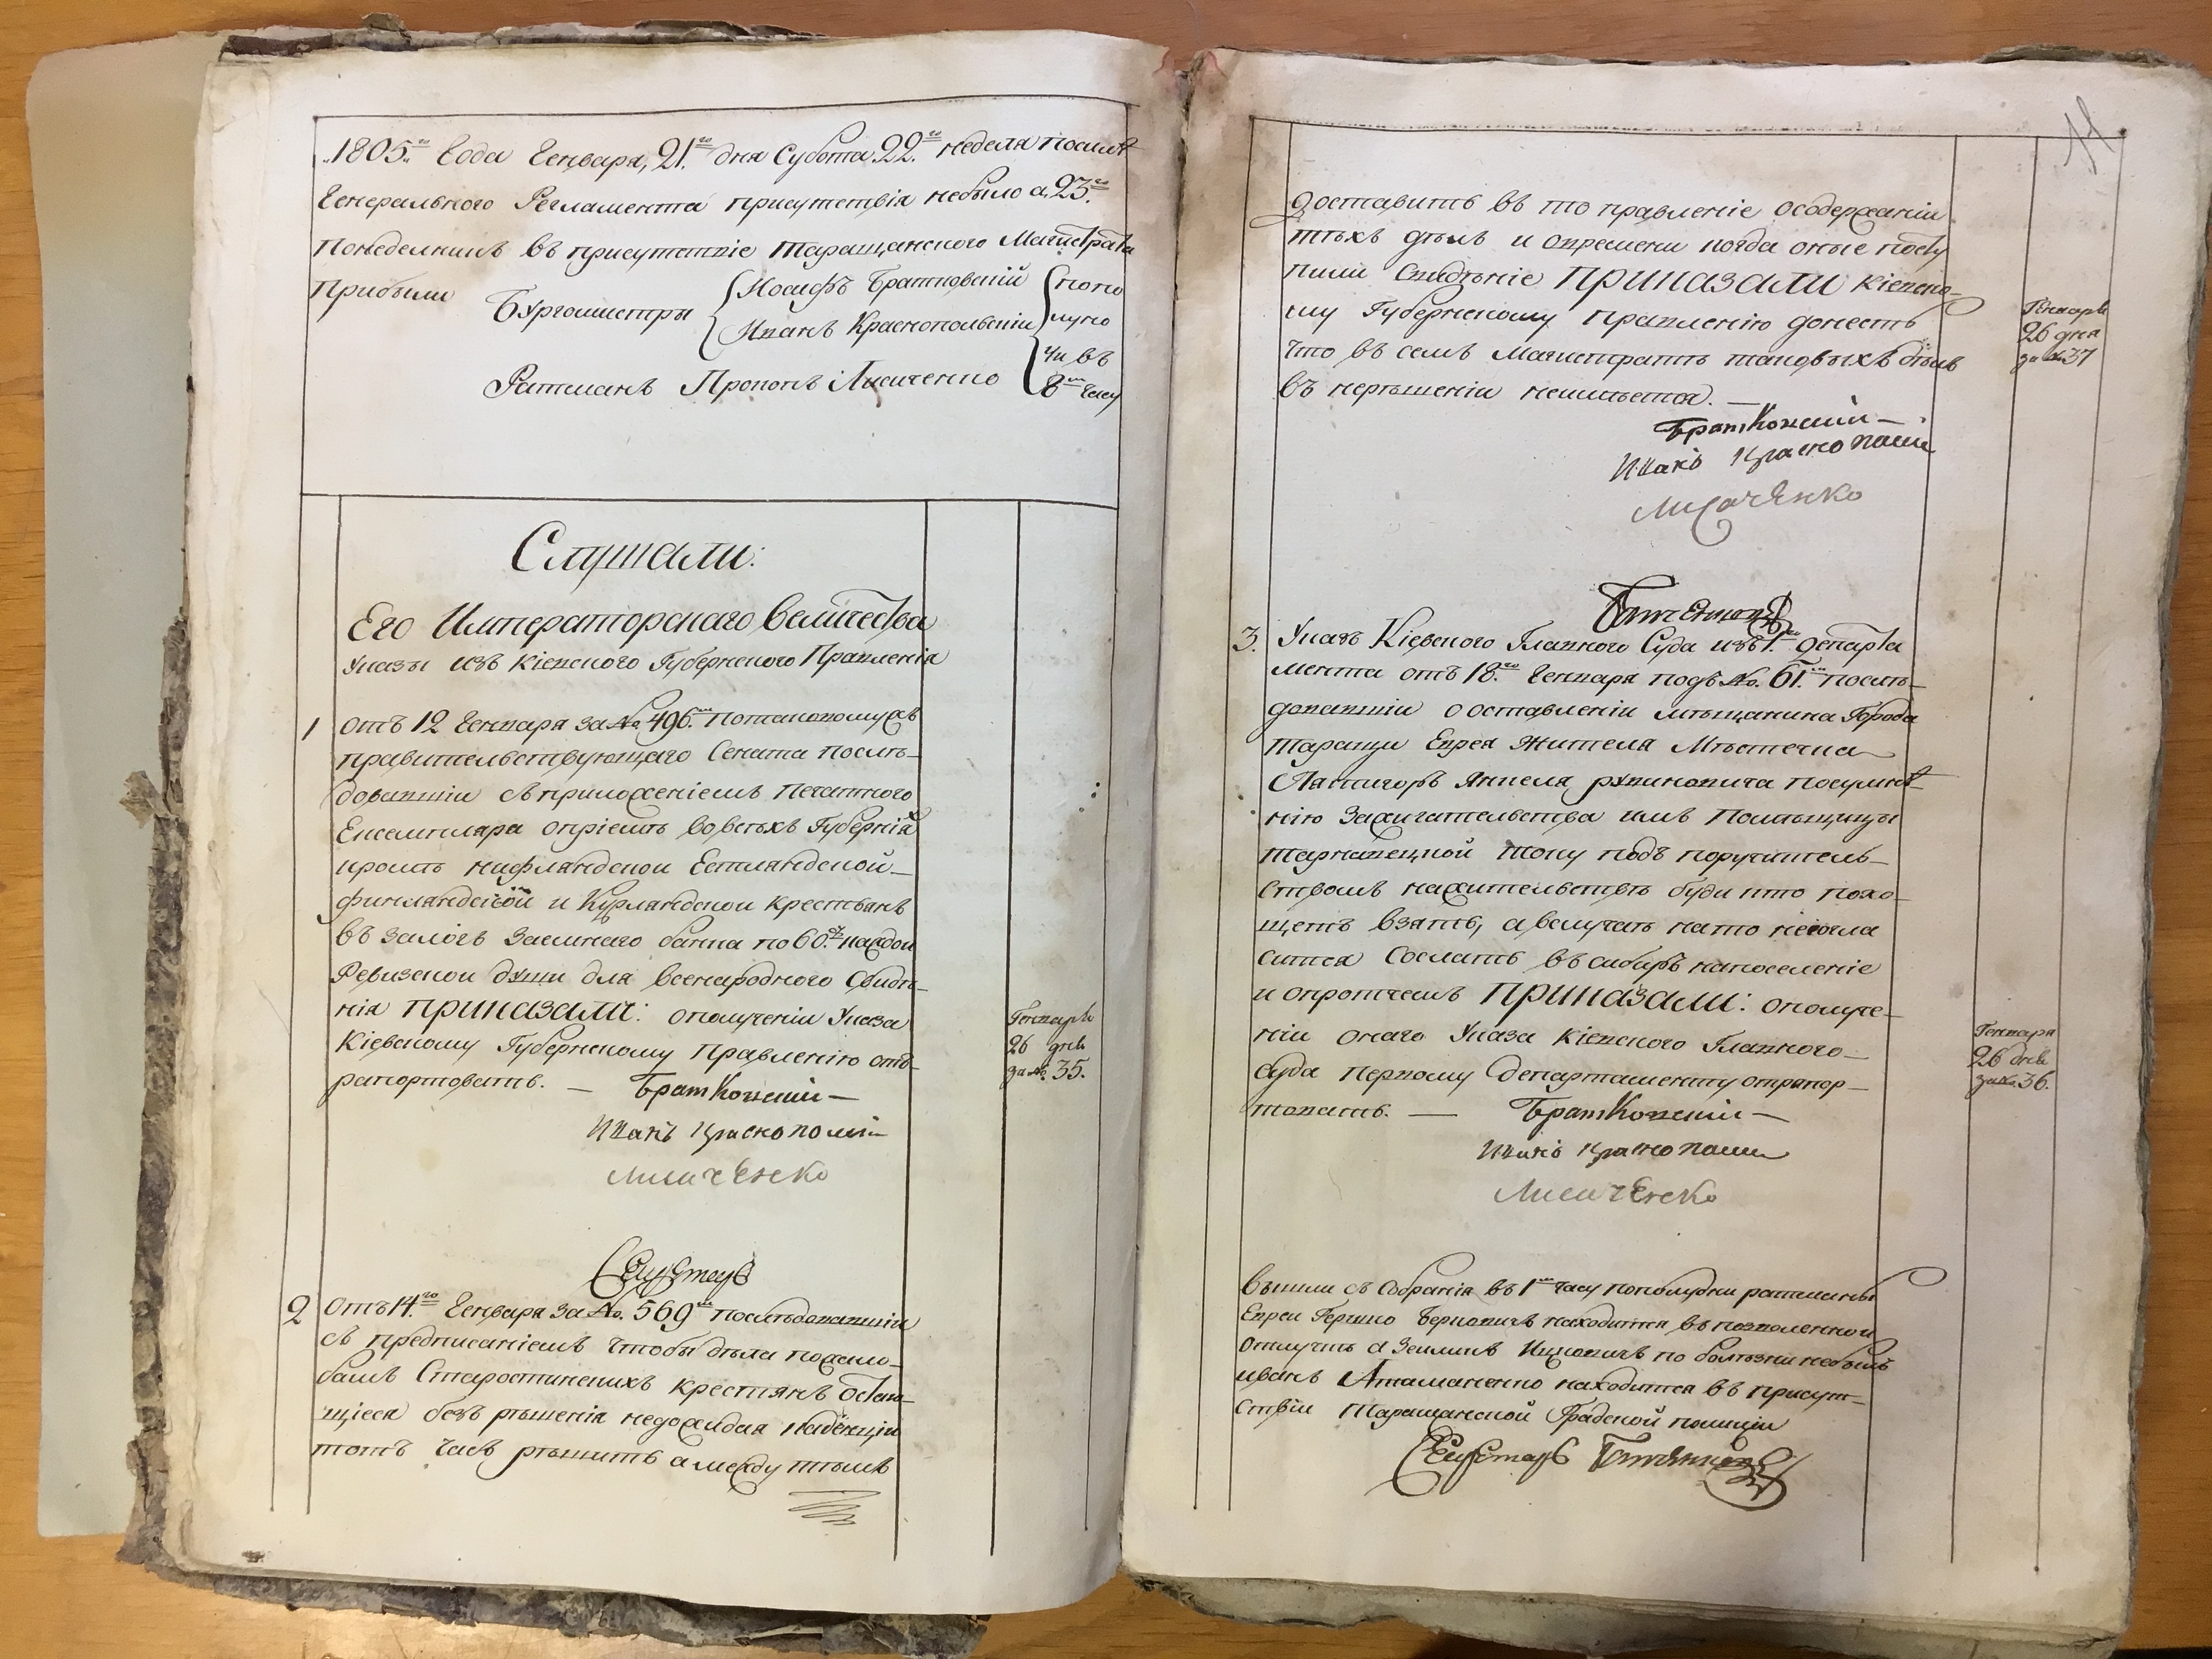 1805.го Года Генваря, 21.го дня Субота 22.го неделя послѣ
Генерального Регламента присутствія небыло а, 23.го
понеделникъ въ присутствіе Таращанского Магистрата
прибыли
Бургомистры
Иосифъ Братковскій
Иванъ Краснопольскіи
Ратманъ Прокопъ Лисиченко
пополу
чи въ
8м часу
Слушали:
Его Императорскаго Величества
Указы изъ Кіевского Губернского Правленія
1 отъ 12 Генваря за No. 496.м потаковомужъ
правительствующаго Сената послѣ-
довавшіи съ приложеніемъ печатного
Екземпляра опріемѣ вовсѣхъ Губерніях
кромѣ лифляндскои Естляндской-
финляндской и Курляндскои крестьянъ
въ залогъ Заемнаго банка по 60.ръ накаждои
Ревизскои души для всенародного Свидѣ-
нія приказали: ополученіи Указа
Кіевскому Губернскому Правленію отъ-
рапортовать. — Братковскіи —
Иванъ Краснополскіи
Лисиченко
Секретарь
2 Отъ 14.го Генваря за No. 569м послѣдовавшіи
съ предписаніемъ чтобы дѣла пожало-
бамъ Старостинскихъ крестьянъ остаю-
щіеся безъ рѣшенія недожидая
тотъ часъ рѣшить а между тѣмъ
11
доставить въ то правленіе осодержаніи
тѣхъ дѣлъ и овремени когда оные посту
пили Свидѣніе приказали Кіевско-
му Губернскому правленію донесть
что въ семъ Магистратѣ таковыхъ дѣлъ
въ нерѣшеніи неимѣется. —
Братковскіи —
Иванъ Краснополскіи
Лисаченко
Генваря
26 дня
за No 37
3. Указъ Кіевского Главного Суда изъ 1.го департа
мента отъ 18.го Генваря подъ No. 61.м послѣ-
довавшіи о оставленіи мѣщанина Города
Таращи Еврея жителя Мѣстечка
Янкеля рувиновича посумнѣ-
нію Зажигательства имъ Помѣщицы
Тарнавецкой току подъ поручитель-
ствомъ нажительствѣ буди кто похо-
щетъ взять, а вслучаѣ нато несогла
сится Сослать въ сибиръ напоселеніе
и опротчемъ приказали: ополуче-
ніи онаго Указа Кіевского Главного-
суда первому департаменту отрапор-
товать. — Братковскіи —
Иванъ Краснополскіи
Лисиченко
Генваря
26 дня
за No. 36.
Генваря
26 дня
за No. 35.
вышли съ собранія въ 1м часу пополудни ратманы
Евреи Гершко Берковичъ находится въ позволенной
отлучкѣ а Зеиликъ Ицковичъ по болѣзни небылъ
иванъ Атаманенко находится въ присут-
ствіи Таращанской Градской полиціи
Секретарь